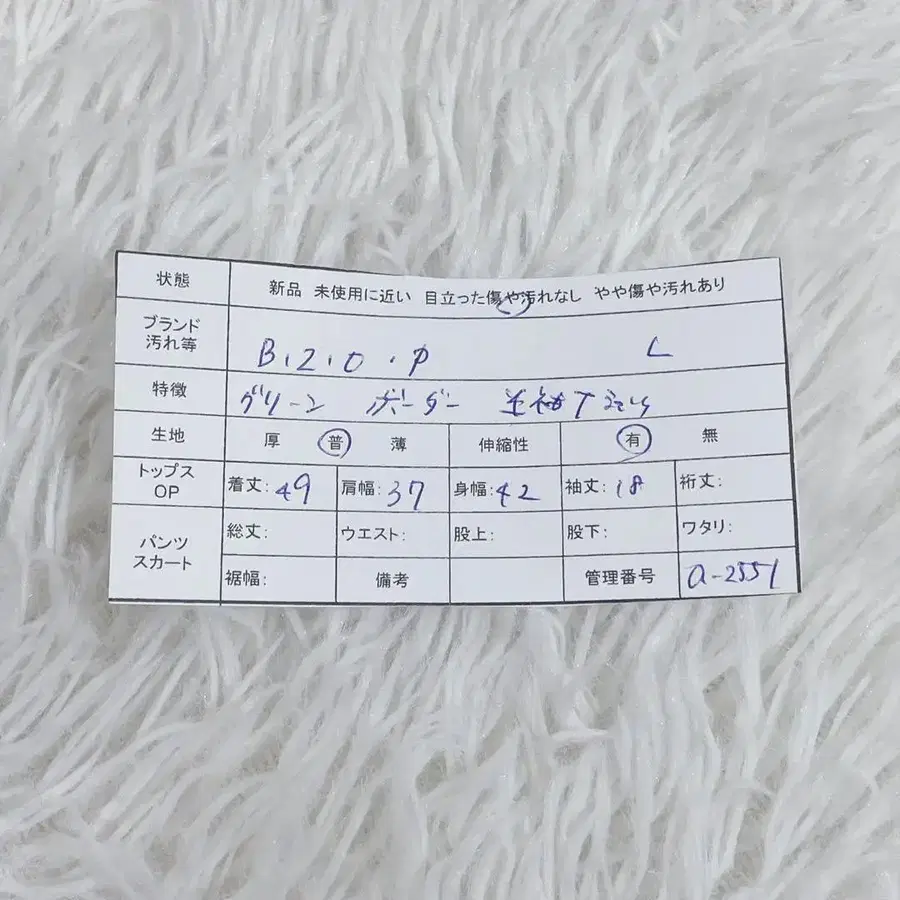 状態 新品 未使用に近い 目立った傷や汚れなし やや傷や汚れあり
ブランド
汚れ等 B.2.O.P L
特徴 グリーン ボーダー 半袖Tシャツ
生地 厚 普 薄 伸縮性 有 無
トップス
OP 着丈:49 肩幅:37 身幅:42 袖丈:18 裄丈:
パンツ
スカート 総丈: ウエスト: 股上: 股下: ワタリ:
裾幅: 備考 管理番号 a-2551